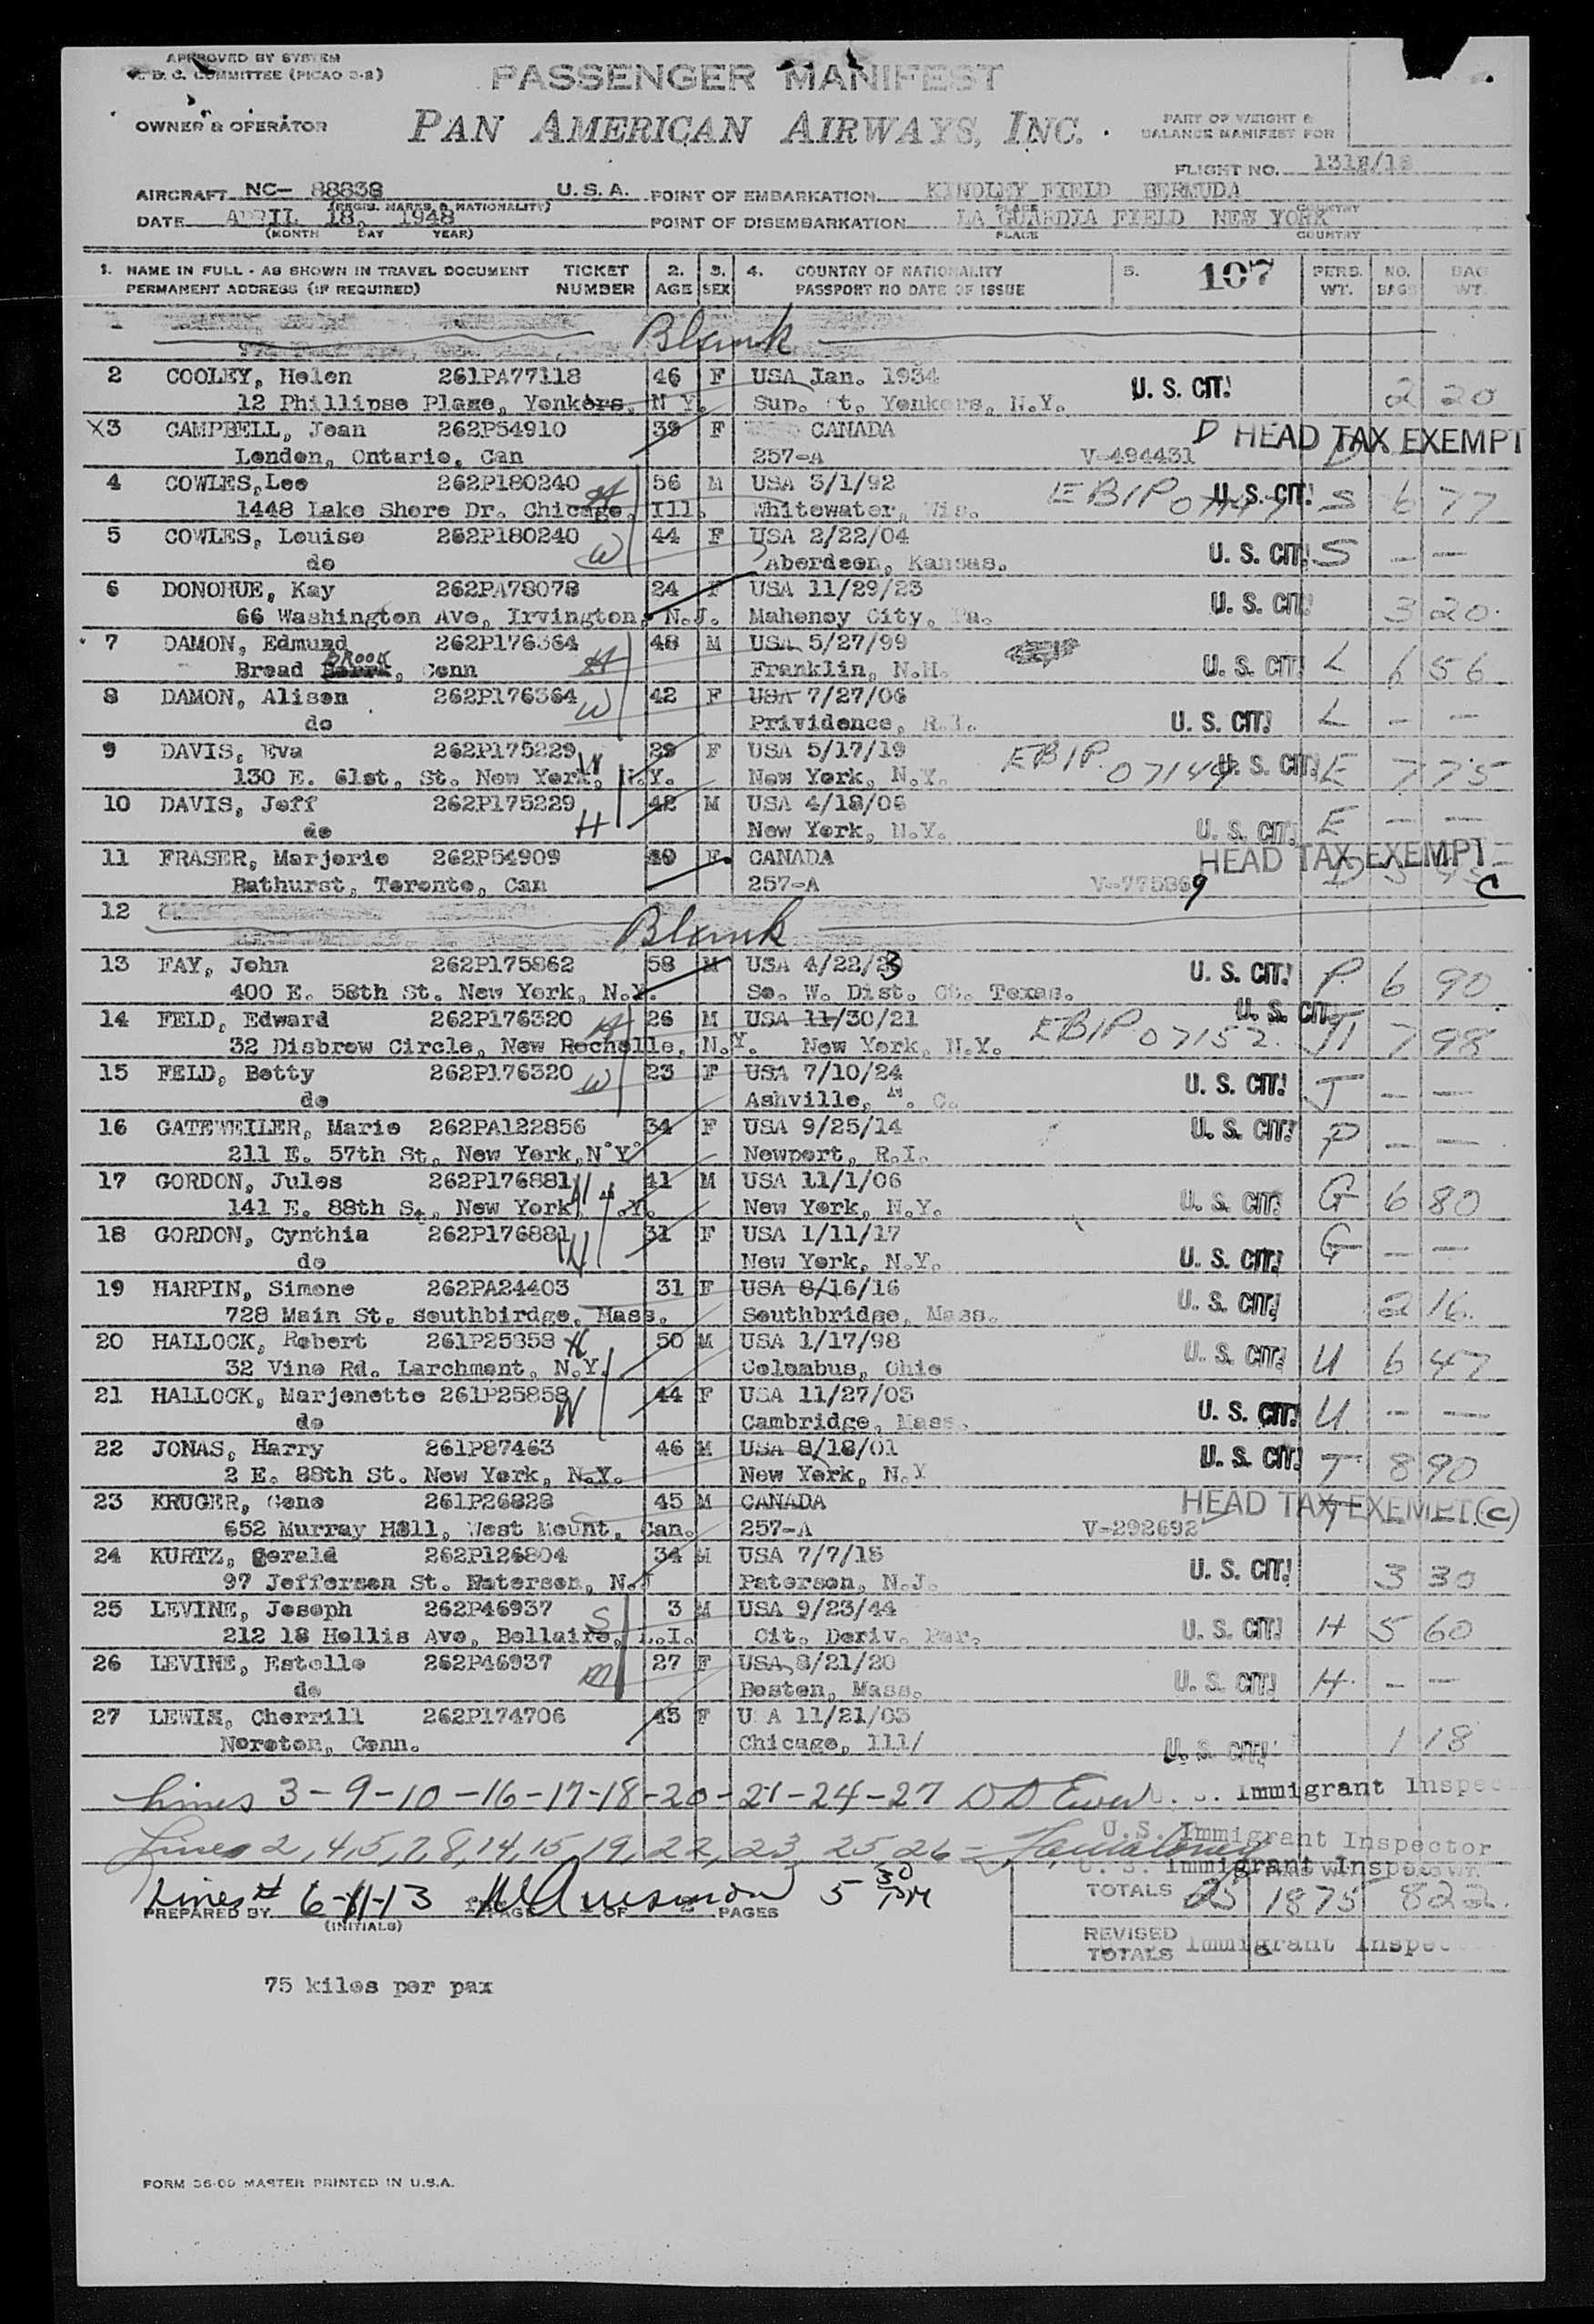 APPROVED BY SYSTEM
COMMITTEE (PICAO 3-2)
PASSENGER MANIFEST
OWNER & OPERATOR
PAN AMERICAN AIRWAYS, INC.
PART OF WEIGHT &
BALANCE MANIFEST FOR
FLIGHT NO.
AIRCRAFT NC- 88838 U.S.A. POINT OF EMBARKATION KINDLEY FIELD BERMUDA
(REGIS. MARKS & NATIONALITY) PLACE COUNTRY
DATE APRIL 18, 1948 POINT OF DISEMBARKATION LA GUARDIA FIELD NEW YORK
(MONTH DAY YEAR) PLACE COUNTRY
1. NAME IN FULL - AS SHOWN IN TRAVEL DOCUMENT TICKET 2. 3. 4. COUNTRY OF NATIONALITY 5. 107 PERS. NO. BAG
PERMANENT ADDRESS (IF REQUIRED) NUMBER AGE SEX PASSPORT NO DATE OF ISSUE WT. BAGS WT.
1 Blank
2 COOLEY, Helen 261PA77118 46 F USA Jan. 1934 U. S. CIT. 2 20
12 Phillipse Plage, Yonkers, N Y. Sup. Ct. Yonkers, N.Y.
X3 CAMPBELL, Jean 262P54910 39 F CANADA D HEAD TAX EXEMPT
London, Ontario, Can 257-A V-494431
4 COWLES, Lee 262P180240 H 56 M USA 3/1/92 EBIP U. S. CIT. S 6 77
1448 Lake Shore Dr. Chicage, Ill. Whitewater, Wis.
5 COWLES, Louise 262P180240 W 44 F USA 2/22/04 U. S. CIT. S — —
do Aberdeen, Kansas.
6 DONOHUE, Kay 262PA78078 24 F USA 11/29/23 U. S. CIT. 3 20
66 Washington Ave, Irvington, N.J. Mahoney City, Pa.
7 DAMON, Edmund 262P176364 H 48 M USA 5/27/99 U. S. CIT. L 6 56
Broad BROOK, Conn Franklin, N.H.
8 DAMON, Alison 262P176364 W 42 F USA 7/27/06 U. S. CIT. L — —
do Prividence, R.I.
9 DAVIS, Eva 262P175229 W 29 F USA 5/17/19 EBIP. 07144 U. S. CIT. E 7 75
130 E. 61st, St. New York, N.Y. New York, N.Y.
10 DAVIS, Jeff 262P175229 H 42 M USA 4/18/06 U. S. CIT. E — —
do New York, N.Y.
11 FRASER, Marjorie 262P54909 F. CANADA HEAD TAX EXEMPT
Bathurst, Toronto, Can 257-A V-775869 C
12 Blank
13 FAY, John 262P175862 58 M USA 4/22/23 U. S. CIT. P. 6 90
400 E. 58th St. New York, N.Y. So. W. Dist. Ct. Texas.
14 FELD, Edward 262P176320 H 26 M USA 11/30/21 EBIP 07152. U. S. CIT. J 7 98
32 Disbrow Circle, New Rochelle, N.Y. New York, N.Y.
15 FELD, Betty 262P176320 W 23 F USA 7/10/24 U. S. CIT. J — —
do Ashville, N. C.
16 GATEWEILER, Marie 262PA122856 34 F USA 9/25/14 U. S. CIT. P — —
211 E. 57th St, New York,N Y Newport, R.I.
17 GORDON, Jules 262P176881 H 41 M USA 11/1/06 U. S. CIT. G 6 80
141 E. 88th St, New York, N.Y. New York, N.Y.
18 GORDON, Cynthia 262P176881 W 31 F USA 1/11/17 U. S. CIT. G — —
do New York, N.Y.
19 HARPIN, Simone 262PA24403 31 F USA 8/16/16 U. S. CIT. 2 16.
728 Main St. southbirdge, Mass. Southbridge, Mass.
20 HALLOCK, Robert 261P25858 H 50 M USA 1/17/98 U. S. CIT. U 6 47
32 Vine Rd. Larchment, N.Y. Columbus, Ohio
21 HALLOCK, Marjenette 261P25858 W 44 F USA 11/27/03 U. S. CIT. U. — —
do Cambridge, Mass.
22 JONAS, Harry 261P87463 46 M USA 8/18/01 U. S. CIT. T 8 90
2 E. 88th St. New York, N.Y. New York, N.Y
23 KRUGER, Gene 261P26828 45 M CANADA HEAD TAX EXEMPT. (C)
652 Murray Hill, West Mount, Can. 257-A V-292692
24 KURTZ, Gerald 262P126804 34 M USA 7/7/13 U. S. CIT. 3 30
97 Jefferson St. Paterson, N.J Paterson, N.J.
25 LEVINE, Joseph 262P46937 S 3 M USA 9/23/44 U. S. CIT. H 5 60
212 18 Hollis Ave, Bellaire, L.I. Cit. Deriv. Par.
26 LEVINE, Estelle 262P46937 M 27 F USA 8/21/20 U. S. CIT. H. — —
do Boston, Mass.
27 LEWIS, Cherrill 262P174706 45 F U A 11/21/03 U. S. CIT. 1 18
Noroton, Conn. Chicago, Ill/
Lines 3-9-10-16-17-18-20-21-24-27 Immigrant Inspec
U.S. Immigrant Inspector
Lines 2,4,5,7,8,14,15,19,22,23,25,26 - U. S. Immigrant Inspector
Lines # 6-11-13 5 30 PM
PREPARED BY PAGE OF PAGES
(INITIALS)
TOTALS 25 1875 822.
REVISED
TOTALS Immigrant Inspec
75 kilos per pax
FORM 36-00 MASTER PRINTED IN U.S.A.